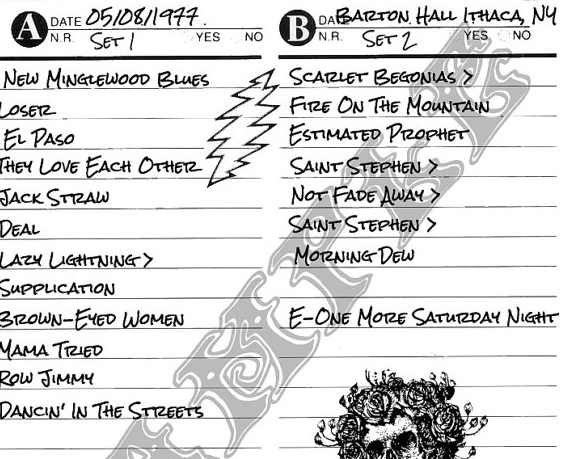 A DATE 05/08/1977.
N.R. SET 1 YES NO
NEW MINGLEWOOD BLUES
LOSER
EL PASO
THEY LOVE EACH OTHER
JACK STRAW
DEAL
LAZY LIGHTNING >
SUPPLICATION
BROWN-EYED WOMEN
MAMA TRIED
ROW JIMMY
DANCIN' IN THE STREETS
B DA BARTON HALL ITHACA, NY
N.R. SET 2 YES NO
SCARLET BEGONIAS >
FIRE ON THE MOUNTAIN
ESTIMATED PROPHET
SAINT STEPHEN >
NOT FADE AWAY >
SAINT STEPHEN >
MORNING DEW
E-ONE MORE SATURDAY NIGHT